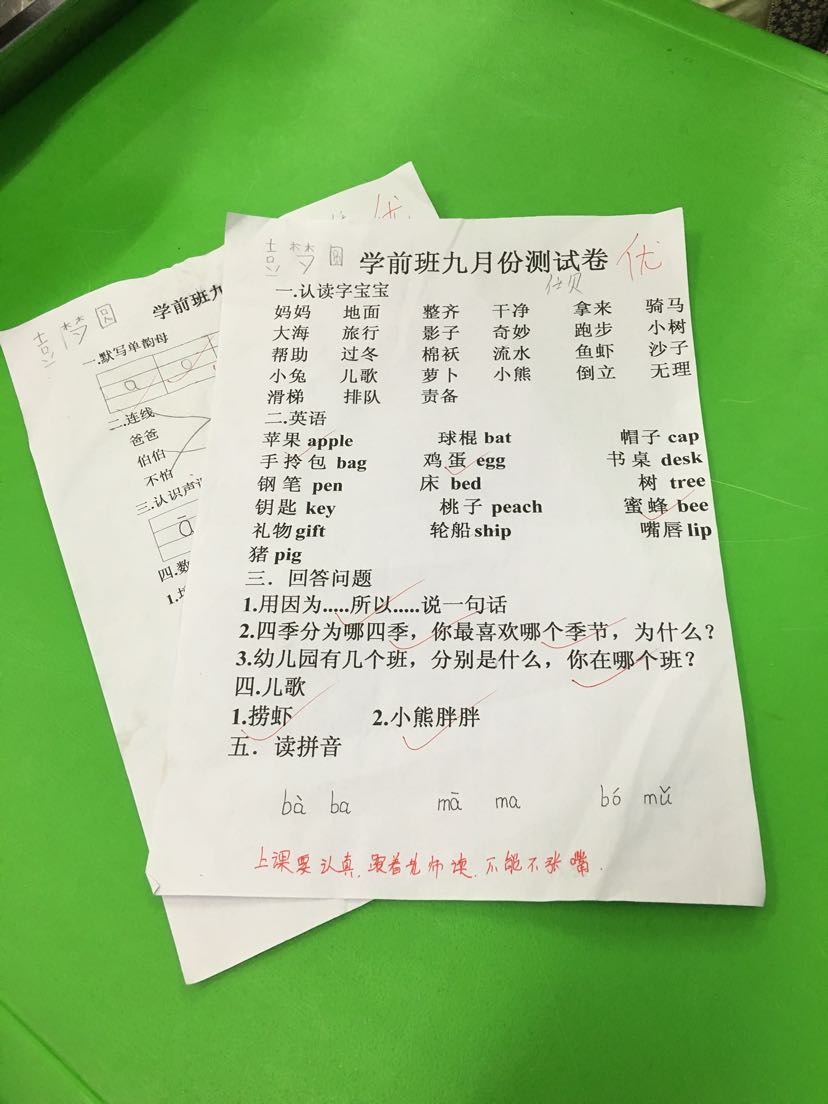 梦圆 学前班九月份测试卷 优
一.认读字宝宝
妈妈 地面 整齐 干净 拿来 骑马
大海 旅行 影子 奇妙 跑步 小树
帮助 过冬 棉袄 流水 鱼虾 沙子
小兔 儿歌 萝卜 小熊 倒立 无理
滑梯 排队 责备
二.英语
苹果 apple 球棍 bat 帽子 cap
手拎包 bag 鸡蛋 egg 书桌 desk
钢笔 pen 床 bed 树 tree
钥匙 key 桃子 peach 蜜蜂 bee
礼物 gift 轮船 ship 嘴唇 lip
猪 pig
三．回答问题
1.用因为.....所以.....说一句话
2.四季分为哪四季，你最喜欢哪个季节，为什么？
3.幼儿园有几个班，分别是什么，你在哪个班？
四.儿歌
1.捞虾 2.小熊胖胖
五．读拼音
bà ba mā ma bó mǔ
上课要认真.跟着老师读.不能不张嘴.
梦圆 学前班九 优
一.默写单韵母
a e
二.连线
爸爸
伯伯
不怕
三.认识声
ā
四.数
1.